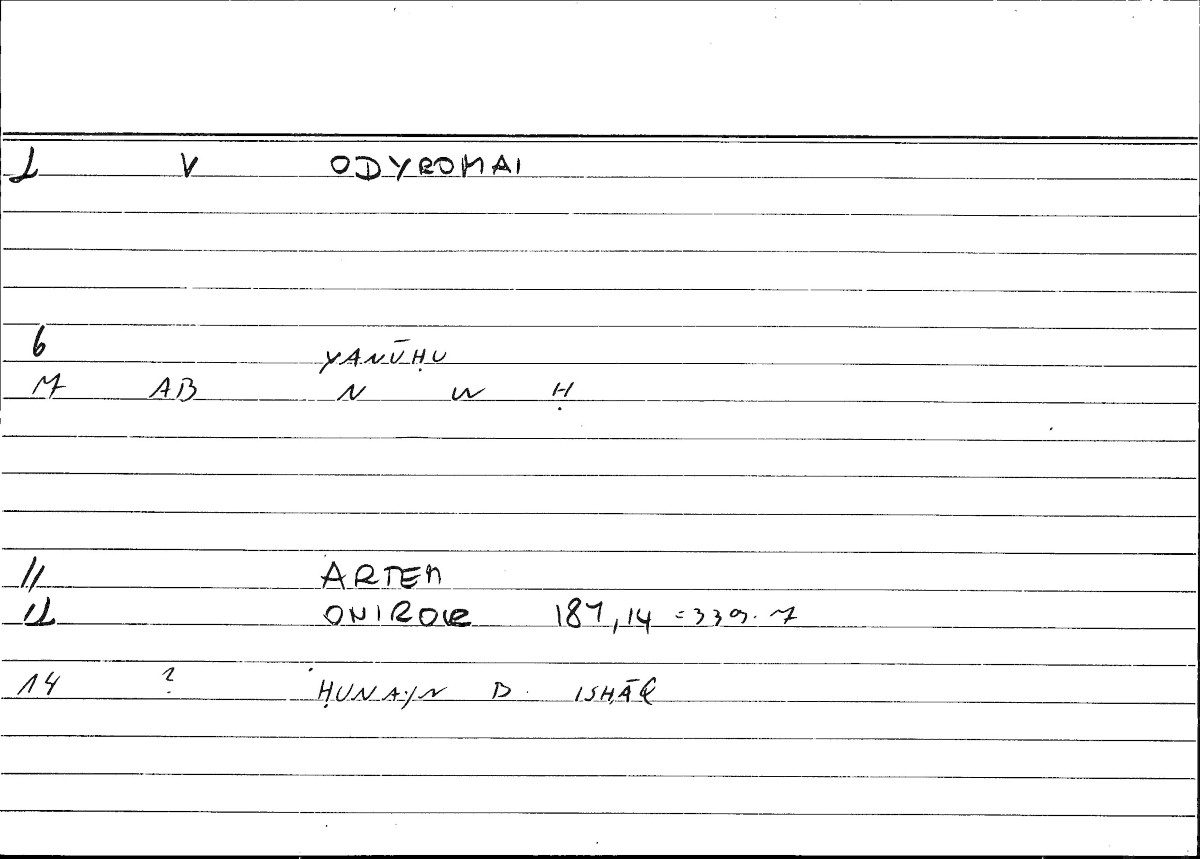 1 V ODYROMAI
6 YANŪḤU
7 AB N W Ḥ
11 ARTEM
12 ONIROCR 187,14 =339.7
14 ? ḤUNAYN B. ISḤĀQ